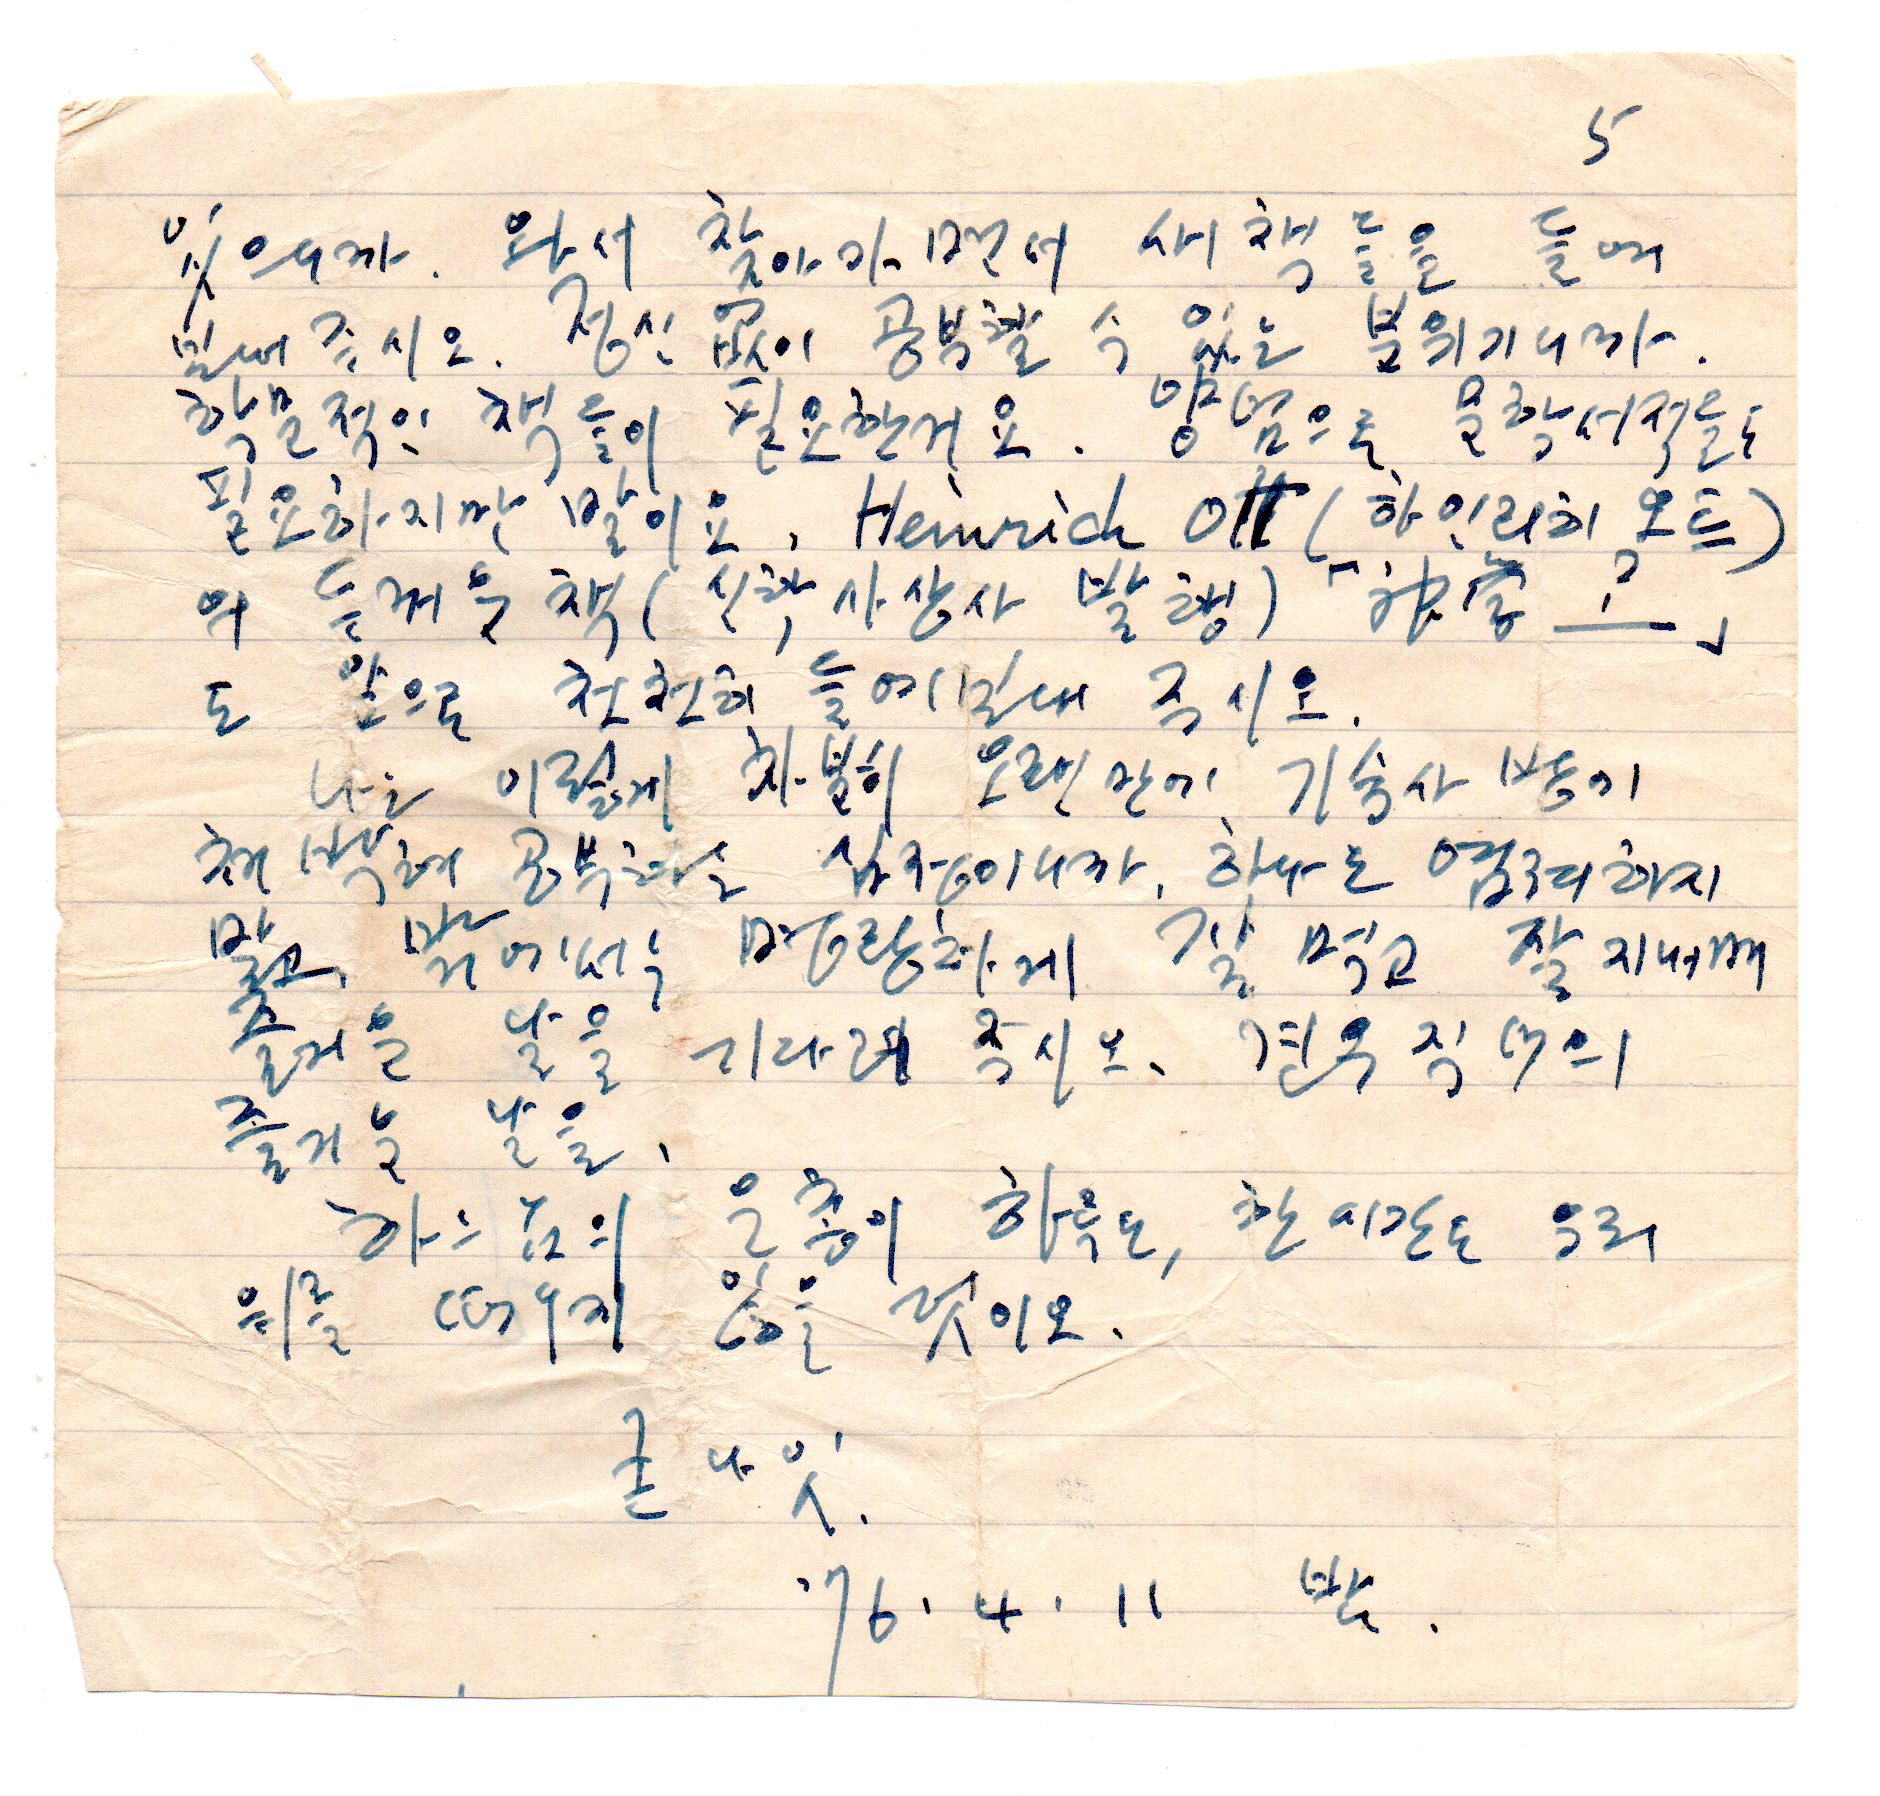 5
있으니까. 와서 찾아가면서 새 책들을 들여
보내 주시오. 정신없이 공부할 수 있는 분위기니까.
학문적인 책들이 필요한거요. 양념으로 문학서적들도
필요하지만 말이요. Heinrich Ott (하인리히 오트)
의 두꺼운 책 (신학사상사 발행) 「
도 앞으로 천천히 들여보내 주시오.
나는 이렇게 차분히 오래간만에 기숙사
공부하는 심정이니까, 하나도 염려하지
말고, 밖에서두 명랑하게 잘 먹고 잘 지내며
즐거운 날을 기다려 주시오. 견우직녀의
즐거운 날을.
하느님의 은총이 하루도, 한 시간도 우리
위를 떠나지 않을 것이오.
큰 나잇.
'76. 4. 11 밤.